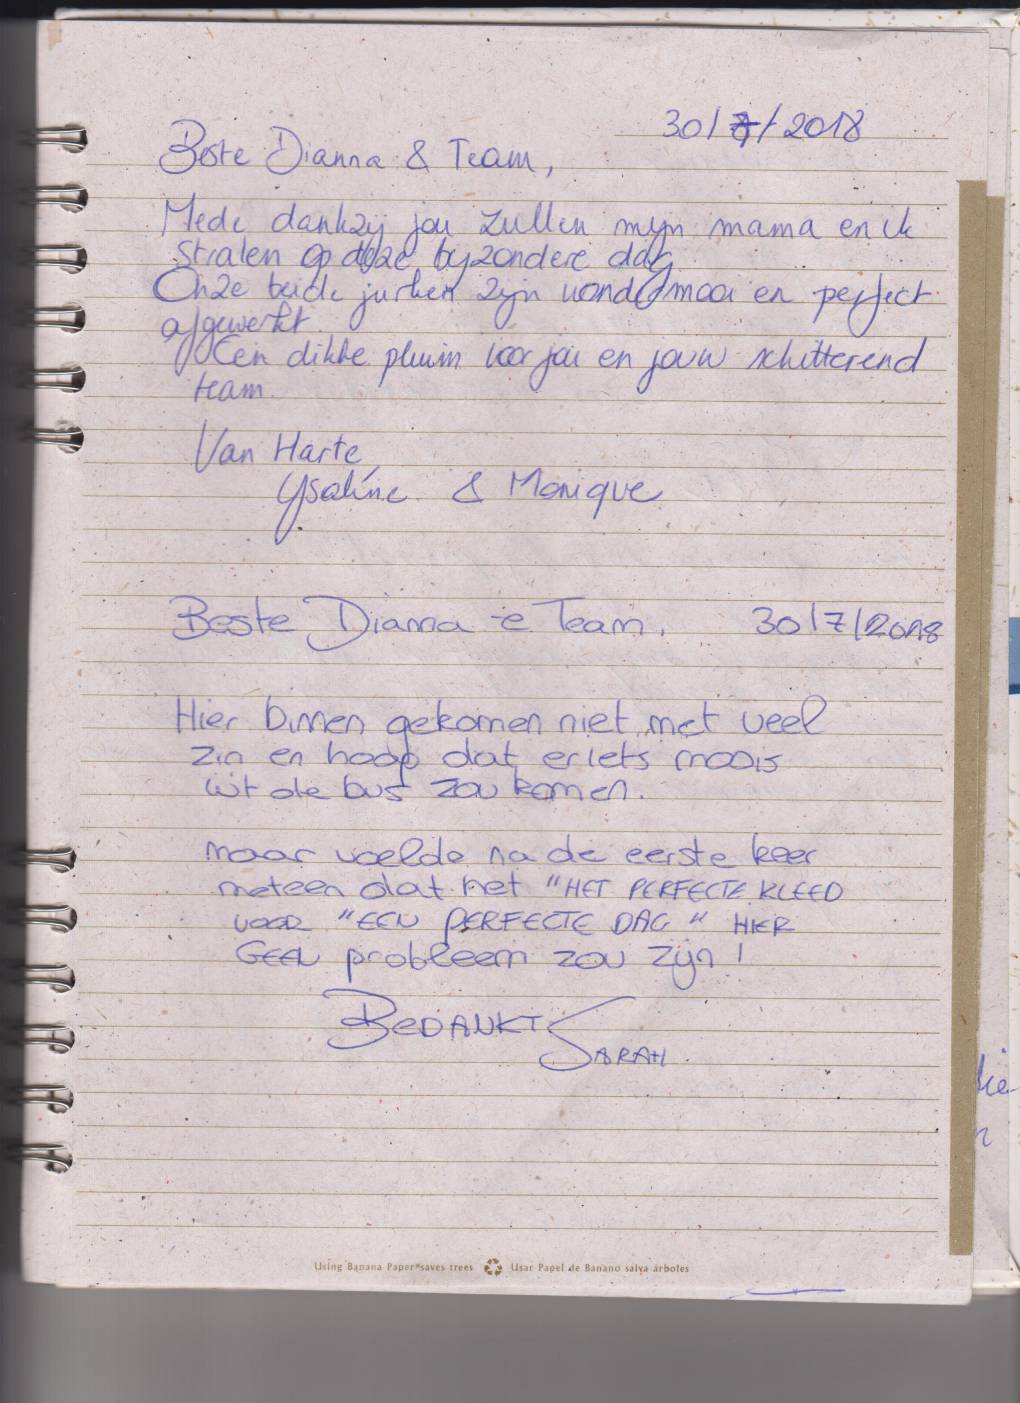 30/7/2018
Beste Dianna & Team,
Mede dankzij jou zullen mijn mama en ik
stralen op deze bijzondere dag.
Onze beide jurken zijn wondermooi en perfect
afgewerkt.
Een dikke pluim voor jou en jouw schitterend
team.
Van Harte,
Ysaline & Monique
Beste Dianna e Team, 30/7/2018
Hier binnen gekomen niet met veel
zin en hoop dat er iets moois
uit de bus zou komen.
maar voelde na de eerste keer
meteen dat het "HET PERFECTE KLEED
VOOR "EEN PERFECTE DAG" HIER
GEEN probleem zou zijn!
BEDANKT SARAH
Using Banana Paper saves trees Usar Papel de Banano salva árboles